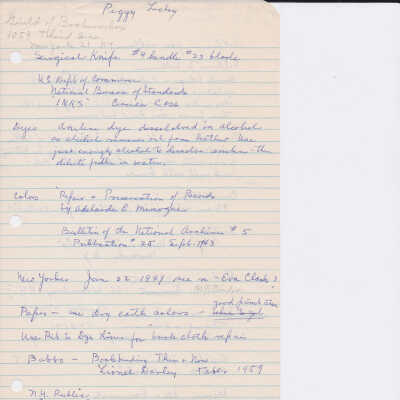 Peggy Lecky
Guild of Bookworkers
1059 Third Ave
New York 21 NY
Surgical Knife #4 handle #23 blade
U.S. Dept of Commerce
National Bureau of Standards
"INKS"
Dyes aniline dye dissolved in alcohol
as alcohol removes oil from leather use
just enough alcohol to dissolve aniline then
dilute in water.
Colors "Repair & Preservation of Records
by Adelaide E. Minogue
Bulletin of the National Archives #5
"Publication" 25 Sept. 1943
New Yorker Jan 22 see in - Eva Clark
Paper - use dry earth colors - good
Use Rit to Dye linens for book cloth repair
Books - Bookbinding Then & Now
Lionel Darley Faber 1959
N.Y. Public